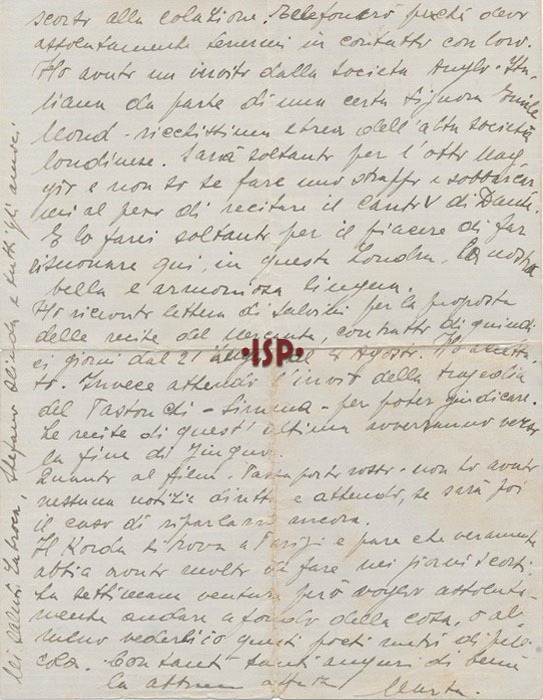 scorto alla colazione. Telefonerò perché devo
assolutamente tenermi in contatto con loro.
Ho avuto un invito dalla Società Anglo-Ita-
liana da parte di una certa Signora Emile
Mond - ricchissima ebrea dell'alta società
londinese. Sarà soltanto per l'otto Mag-
gio e non so se fare uno strappo e sobbarcar
mi al peso di recitare il Canto V di Dante.
E lo farei soltanto per il piacere di far
risuonare qui, in questa Londra, la nostra
bella e armoniosa lingua.
Ho ricevuto lettera di Salvini per la proposta
delle recite del Mercante, contratto di quindi
ci giorni dal 21 al 4 Agosto. Ho accetta-
to. Invece attendo l'invio della tragedia
del Pastonchi - Simma - per poter giudicare.
Le recite di quest'ultima avverranno verso
la fine di Giugno.
Quanto al film - Passaporto rosso - non ho avuto
nessuna notizia diretta e attendo, se sarà poi
il caso di riparlarne ancora.
Il Korda si trova a Parigi e pare che veramente
abbia avuto molto da fare nei giorni scorsi.
La settimana ventura però voglio assoluta-
mente andare a fondo della cosa, o al-
meno vedere questi pochi metri di pelli-
cola. Con tanti tanti auguri di bene
la attrice
Marta
Mi saluti Latroca, Stefano e tutti gli amici.
·ISP·